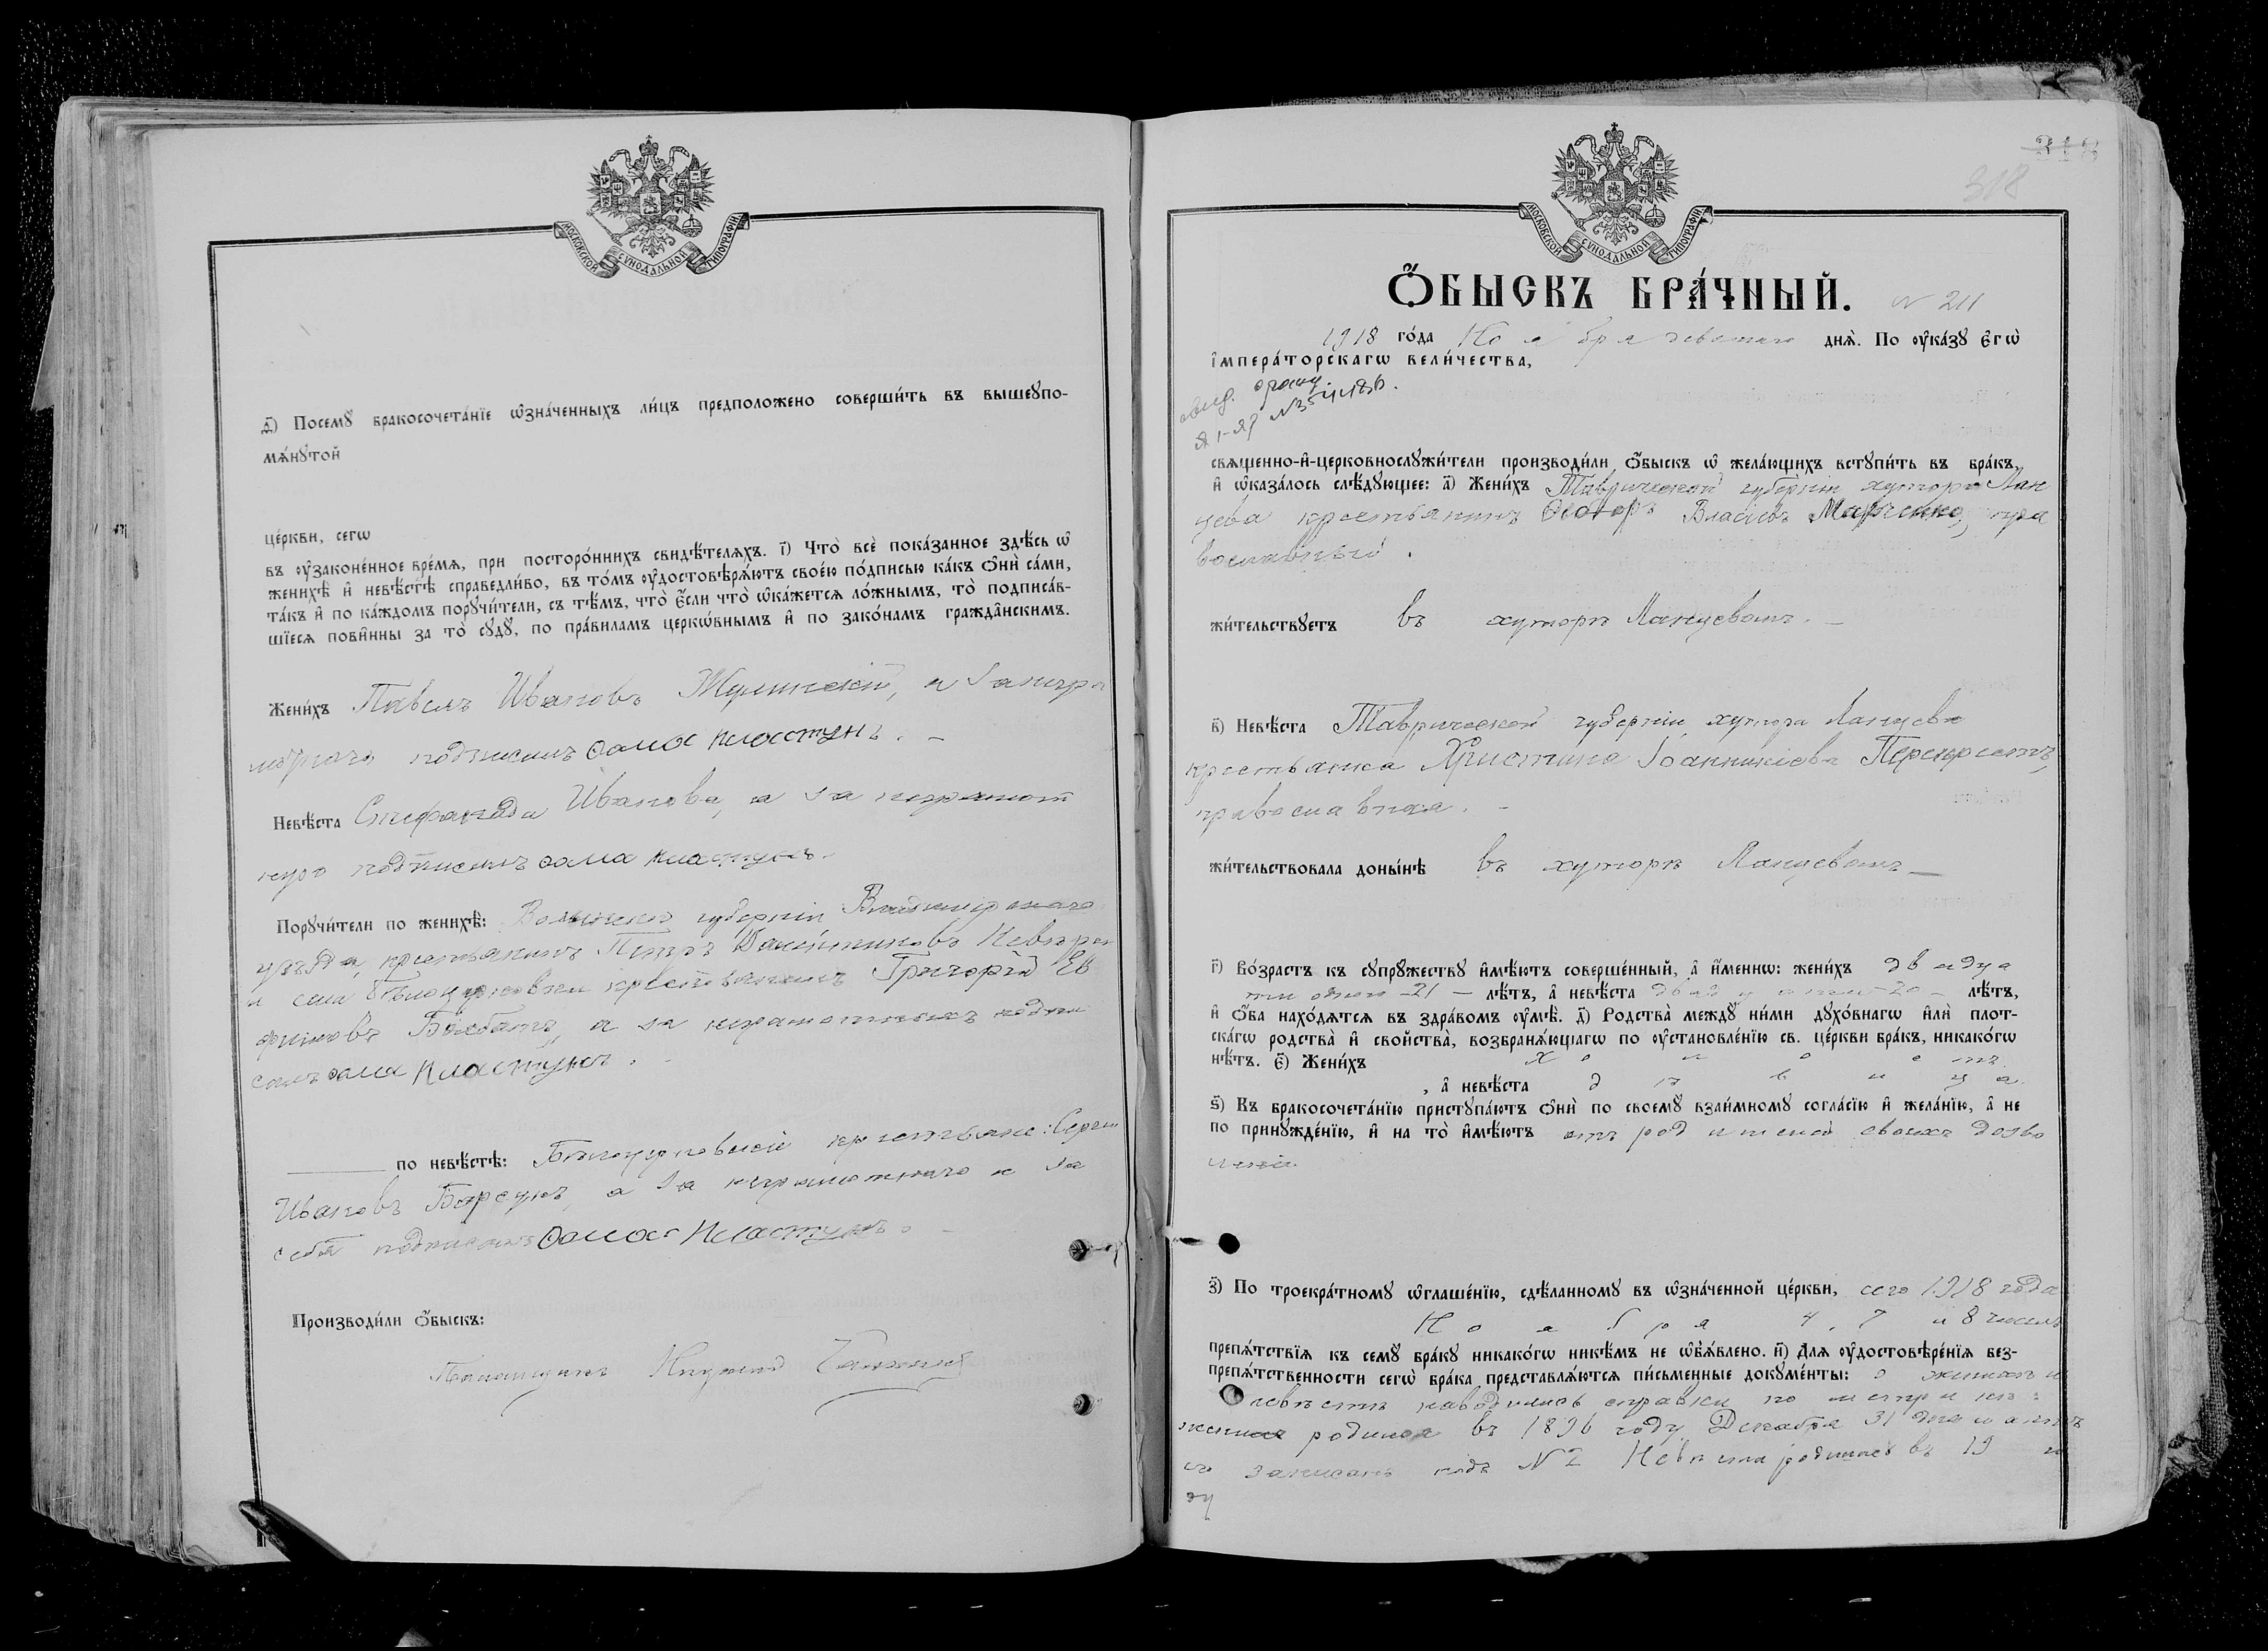 МОСКОВСКОЙ СѴНОДАЛЬНОЙ ТИПОГРАФІИ
д҃) Посемꙋ̀ бракосочета́нїе ѡ҆зна́ченныхъ ли́цъ предположено соверши́ть въ вышеꙋпо-
мѧ́нꙋтой
це́ркви, сегѡ̀
въ ᲂу҆законе́нное вре́мѧ, при посторо́ннихъ свидѣ́телѧхъ. і҃) Что̀ всѐ пока́занное здѣ́сь ѡ҆
женихѣ̀ и҆ невѣ́стѣ справедли́во, въ то́мъ ᲂу҆достовѣрѧ́ютъ свое́ю по́дписью ка́къ ѻ҆нѝ са́ми,
та́къ и҆ по ка́ждомъ порꙋчи́тели, съ тѣ́мъ, что̀ є҆́сли что̀ ѡ҆ка́жетсѧ ло́жнымъ, то̀ подписа́в-
шїесѧ пови́нны за то̀ сꙋдꙋ̀, по пра́виламъ церкѡ́внымъ и҆ по зако́намъ гражда́нскимъ.
Жени́хъ Павелъ Ивановъ а за негра
подписалъ Ѳома Кластунъ. –
Невѣ́ста Ивановa, а за неграмот
ную подписалъ Ѳома Кластунъ.
Порꙋчи́тели по женихѣ̀: Волынской губерніи Владимірскаго
уѣзда, крестьянинъ Петръ
и села Бѣлоцерковки крестьянинъ Григорій Ев
фимовъ а за неграмотныхъ подпи
салъ Ѳома Кластунъ.
по невѣ́стѣ: Бѣлоцерковскій крестьяне: Сергѣй
Ивановъ Барсукъ, а за неграмотнаго и за
себя подписалъ Ѳома Кластунъ. –
Производи́ли ѻ҆́быскъ:
318
318
МОСКОВСКОЙ СѴНОДАЛЬНОЙ ТИПОГРАФІИ
Ѻ҆́БЫСКЪ БРА́ЧНЫЙ. № 211
1918 го́да Ноября девятаго днѧ̀. По ᲂу҆ка́зꙋ Є҆гѡ̀
і҆мпера́торскагѡ вели́чества,
свѧщенно-и҆-церковнослꙋжи́тели производи́ли ѻ҆́быскъ ѡ҆ жела́ющихъ встꙋпи́ть въ бра́къ,
и҆ ѡ҆каза́лось слѣ́дꙋющее: а҃) Жени́хъ Таврической губерніи хутора Лан
цева крестьянинъ Ѳеодоръ Власіевъ Марченко, пра
вославный.
жи́тельствꙋетъ въ хуторѣ Ланцевомъ. –
в҃) Невѣ́ста Таврической губерніи хутора Ланцева
крестьянка Христина Іоанникіева Перехрестъ,
православная. –
жи́тельствовала донынѣ̀ въ хуторѣ Ланцевомъ –
г҃) Во́зрастъ къ сꙋпрꙋ́жествꙋ и҆мѣ́ютъ соверше́нный, а҆ и҆́меннѡ: жени́хъ двадца
ти одного – 21 – лѣ́тъ, а҆ невѣ́ста двадцати – 20 – лѣ́тъ,
и҆ ѻ҆́ба нахо́дѧтсѧ въ здра́вомъ ᲂу҆мѣ̀. д҃) Родства̀ междꙋ̀ ни́ми дꙋхо́внагѡ и҆лѝ плот-
ска́гѡ родства̀ и҆ сво́йства̀, возбранѧ́ющагѡ по ᲂу҆становле́нїю св. це́ркви бра́къ, никако́гѡ
нѣ́тъ. є҃) Жени́хъ холостъ
, а҆ невѣ́ста дѣвица.
ѕ҃) Къ бракосочета́нїю пристꙋпа́ютъ ѻ҆нѝ по своемꙋ̀ взаи́мномꙋ согла́сїю и҆ жела́нїю, а҆ не
по принꙋжде́нїю, и҆ на то̀ и҆мѣ́ютъ отъ родителей своихъ дозво
леніе.
з҃) По троекра́тномꙋ ѡ҆глаше́нїю, сдѣ́ланномꙋ въ ѡ҆зна́ченной це́ркви, сего 1918 года
Ноября 4, 7 и 8 чиселъ
препѧ́тствїѧ къ семꙋ̀ бра́кꙋ никако́гѡ никѣ́мъ не ѡ҆б̾ѧ́влено. и҃) Длѧ ᲂу҆достовѣре́нїѧ без-
препѧ́тственности сегѡ̀ бра́ка представлѧ́ютсѧ пи́сьменные докꙋме́нты: о женихѣ и
невѣстѣ наводились справки по метрикѣ:
женихъ родился въ 1896 году Декабря 31 дня и актъ
его записанъ подъ № 2 Невѣста родилась въ 19